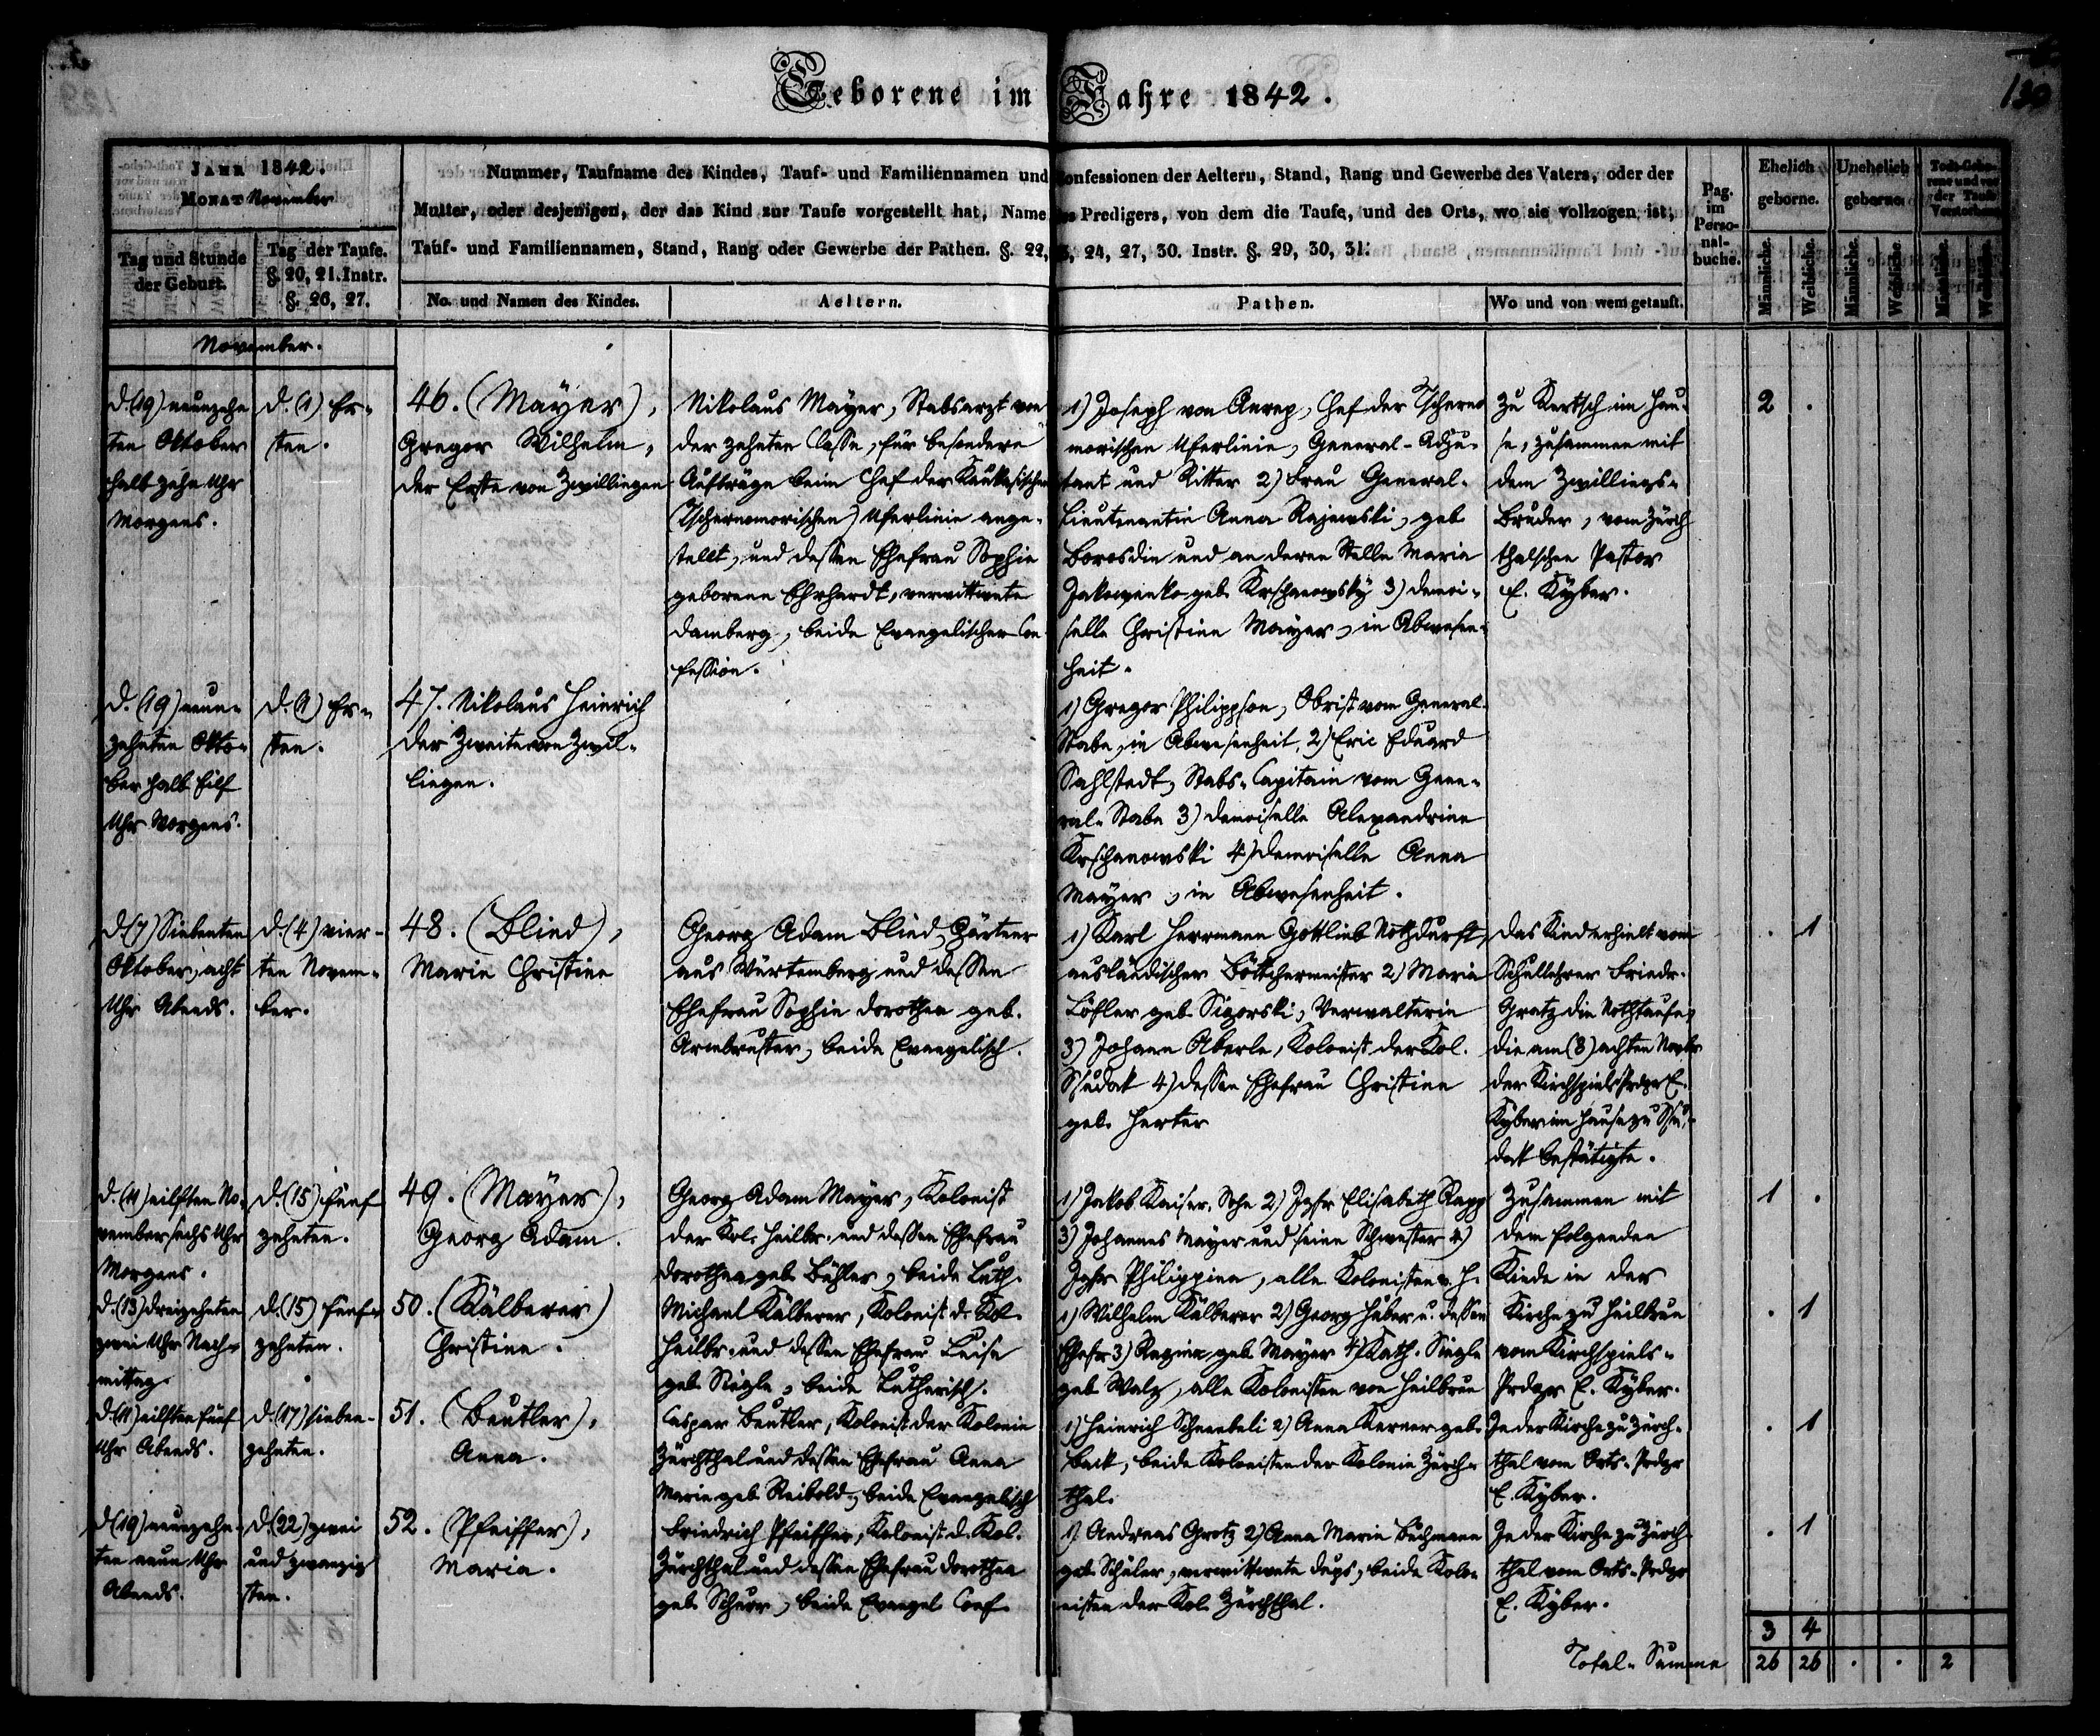 Geborene im Jahre 1842.
130
JAHR 1842.
MONAT November
Tag und Stunde
der Geburt.
Tag der Taufe.
§ 20, 21. Instr.
§. 26, 27.
Nummer, Taufname des Kindes, Tauf- und Familiennamen und Konfessionen der Aeltern, Stand, Rang und Gewerbe des Vaters, oder der
Mutter, oder desjenigen, der das Kind zur Taufe vorgestellt hat, Name des Predigers, von dem die Taufe, und des Orts, wo sie vollzogen ist,
Tauf- und Familiennamen, Stand, Rang oder Gewerbe der Pathen. §. 22, 24, 27, 30. Instr. §. 29, 30, 31.
No. und Namen des Kindes.
Aeltern.
Pathen.
Wo und von wem getauft.
Pag.
im
Perso-
nal-
buche.
Ehelich
geborne.
Unehelich
geborne.
Todt-Gebo-
rene und vor
der Taufe
Verstorbene
Männliche.
Weibliche.
Männliche.
Weibliche.
Männliche.
Weibliche.
November.
d. (19) neunzehn
ten Oktober
halb zehn Uhr
Morgens.
d. (1) Er-
sten.
46. (Mayer),
Gregor Wilhelm,
der Erste von Zwillingen
Nikolaus Mayer, Stabsarzt von
der zehnten Classe, für besondere
Aufträge beim Chef der Kaukasischen
(Tschernomorischen) Uferlinie ange-
stellt, und dessen Ehefrau Sophie
geborene Ehrhardt, verwittwete
Damberg, beide Evangelischer Con
fession.
1) Joseph von Anrep, Chef der Tscherno
morischen Uferlinie, General-Adju-
tant und Ritter 2) Frau General-
Lieutenantin Anna Rajewski, geb.
Borosdin und an deren Stelle Maria
Jakowenko geb. Krschanowsky 3) Demoi-
selle Christine Mayer, in Abwesen-
heit.
Zu Kertsch im Hau-
se, zusammen mit
dem Zwillings-
Bruder, vom Zürch
thalschen Pastor
E. Kyber.
2 .
d. (19) neun-
zehnten Okto-
ber halb Eilf
Uhr Morgens.
d. (1) Er-
sten.
47. Nikolaus Heinrich
der Zweite von Zwil-
lingen.
1) Gregor Philippson, Obrist vom General-
Stabe, in Abwesenheit, 2) Eric Eduard
Sahlstedt, Stabs-Capitain vom Gene-
ral-Stabe 3) Demoiselle Alexandrine
Krschanowski 4) Demoiselle Anna
Mayer, in Abwesenheit.
d. (7) Siebenten
Oktober, acht
Uhr Abends.
d. (4) vier-
ten Novem-
ber.
48. (Blind),
Marie Christine
Georg Adam Blind, Gärtner
aus Würtemberg und dessen
Ehefrau Sophie Dorothea geb.
Armbruster, beide Evangelisch.
1) Karl Herrmann Gottlieb Nothdurft,
ausländischer Böttchermeister 2) Maria
Löfler geb. Sigorski, Verwalterin
3) Johann Aberle, Kolonist der Kol.
Ssudak 4) dessen Ehefrau Christine
geb. Herter
Das Kind erhielt vom
Schullehrer Friedr.
Gratz die Nothtaufe,
die am (8) achten Novbr.
der Kirchspiels Prdgr E.
Kyber im Hause zu Ssu-
dak bestätigte.
. 1
d. (11) eilften No-
vember sechs Uhr
Morgens.
d. (15) fünf
zehnten.
49. (Mayer),
Georg Adam.
Georg Adam Mayer, Kolonist
der Kol. Heilbr. und dessen Ehefrau
Dorothea geb. Bühler, beide Luth.
1) Jakob Kaiser, Sohn 2) Jgfr Elisabeth Rapp
3) Johannes Mayer und seine Schwester 4)
Jgfr Philippine, alle Kolonisten v. H.
Zusammen mit
dem folgenden
Kinde in der
1 .
d. (13) dreizehnten
zwei Uhr Nach-
mittag.
d. (15) fünf-
zehnten.
50. (Kälberer)
Christine.
Michael Kälberer, Kolonist d. Kol.
Heilbr. und dessen Ehefrau Luise
geb. Siegle, beide Lutherisch.
1) Wilhelm Kälberer 2) Georg Huber u. dessen
Ehefr 3) Regina geb. Mayer 4) Kath. Siegle
geb. Walz, alle Kolonisten von Heilbrun
Kirche zu Heilbrun
vom Kirchspiels-
Prdgr E. Kyber.
. 1
d. (11) eilften fünf
Uhr Abends.
d. (17) sieben-
zehnten.
51. (Beutler),
Anna.
Caspar Beutler, Kolonist der Kolonie
Zürchthal und dessen Ehefrau Anna
Marie geb. Reibold, beide Evangelisch
1) Heinrich Schneebeli 2) Anna Kerner geb.
Back, beide Kolonisten der Kolonie Zürch-
thal.
In der Kirche zu Zürch-
thal vom Orts-Prdgr
E. Kyber.
. 1
d. (19) neunzehn-
ten neun Uhr
Abends.
d. (22) zwei
und zwanzig
sten.
52. (Pfeiffer),
Maria.
Friedrich Pfeiffer, Kolonist d. Kol.
Zürchthal und dessen Ehefrau Dorothea
geb. Schurr, beide Evangel Conf.
1) Andreas Grotz 2) Anna Marie Buchmann
geb. Schüler, verwittwete, beide Kolo-
nisten der Kol. Zürchthal.
In der Kirche zu Zürch-
thal vom Orts-Prdgr
E. Kyber.
. 1
3 4
Total-Summe 26 26 . . 2